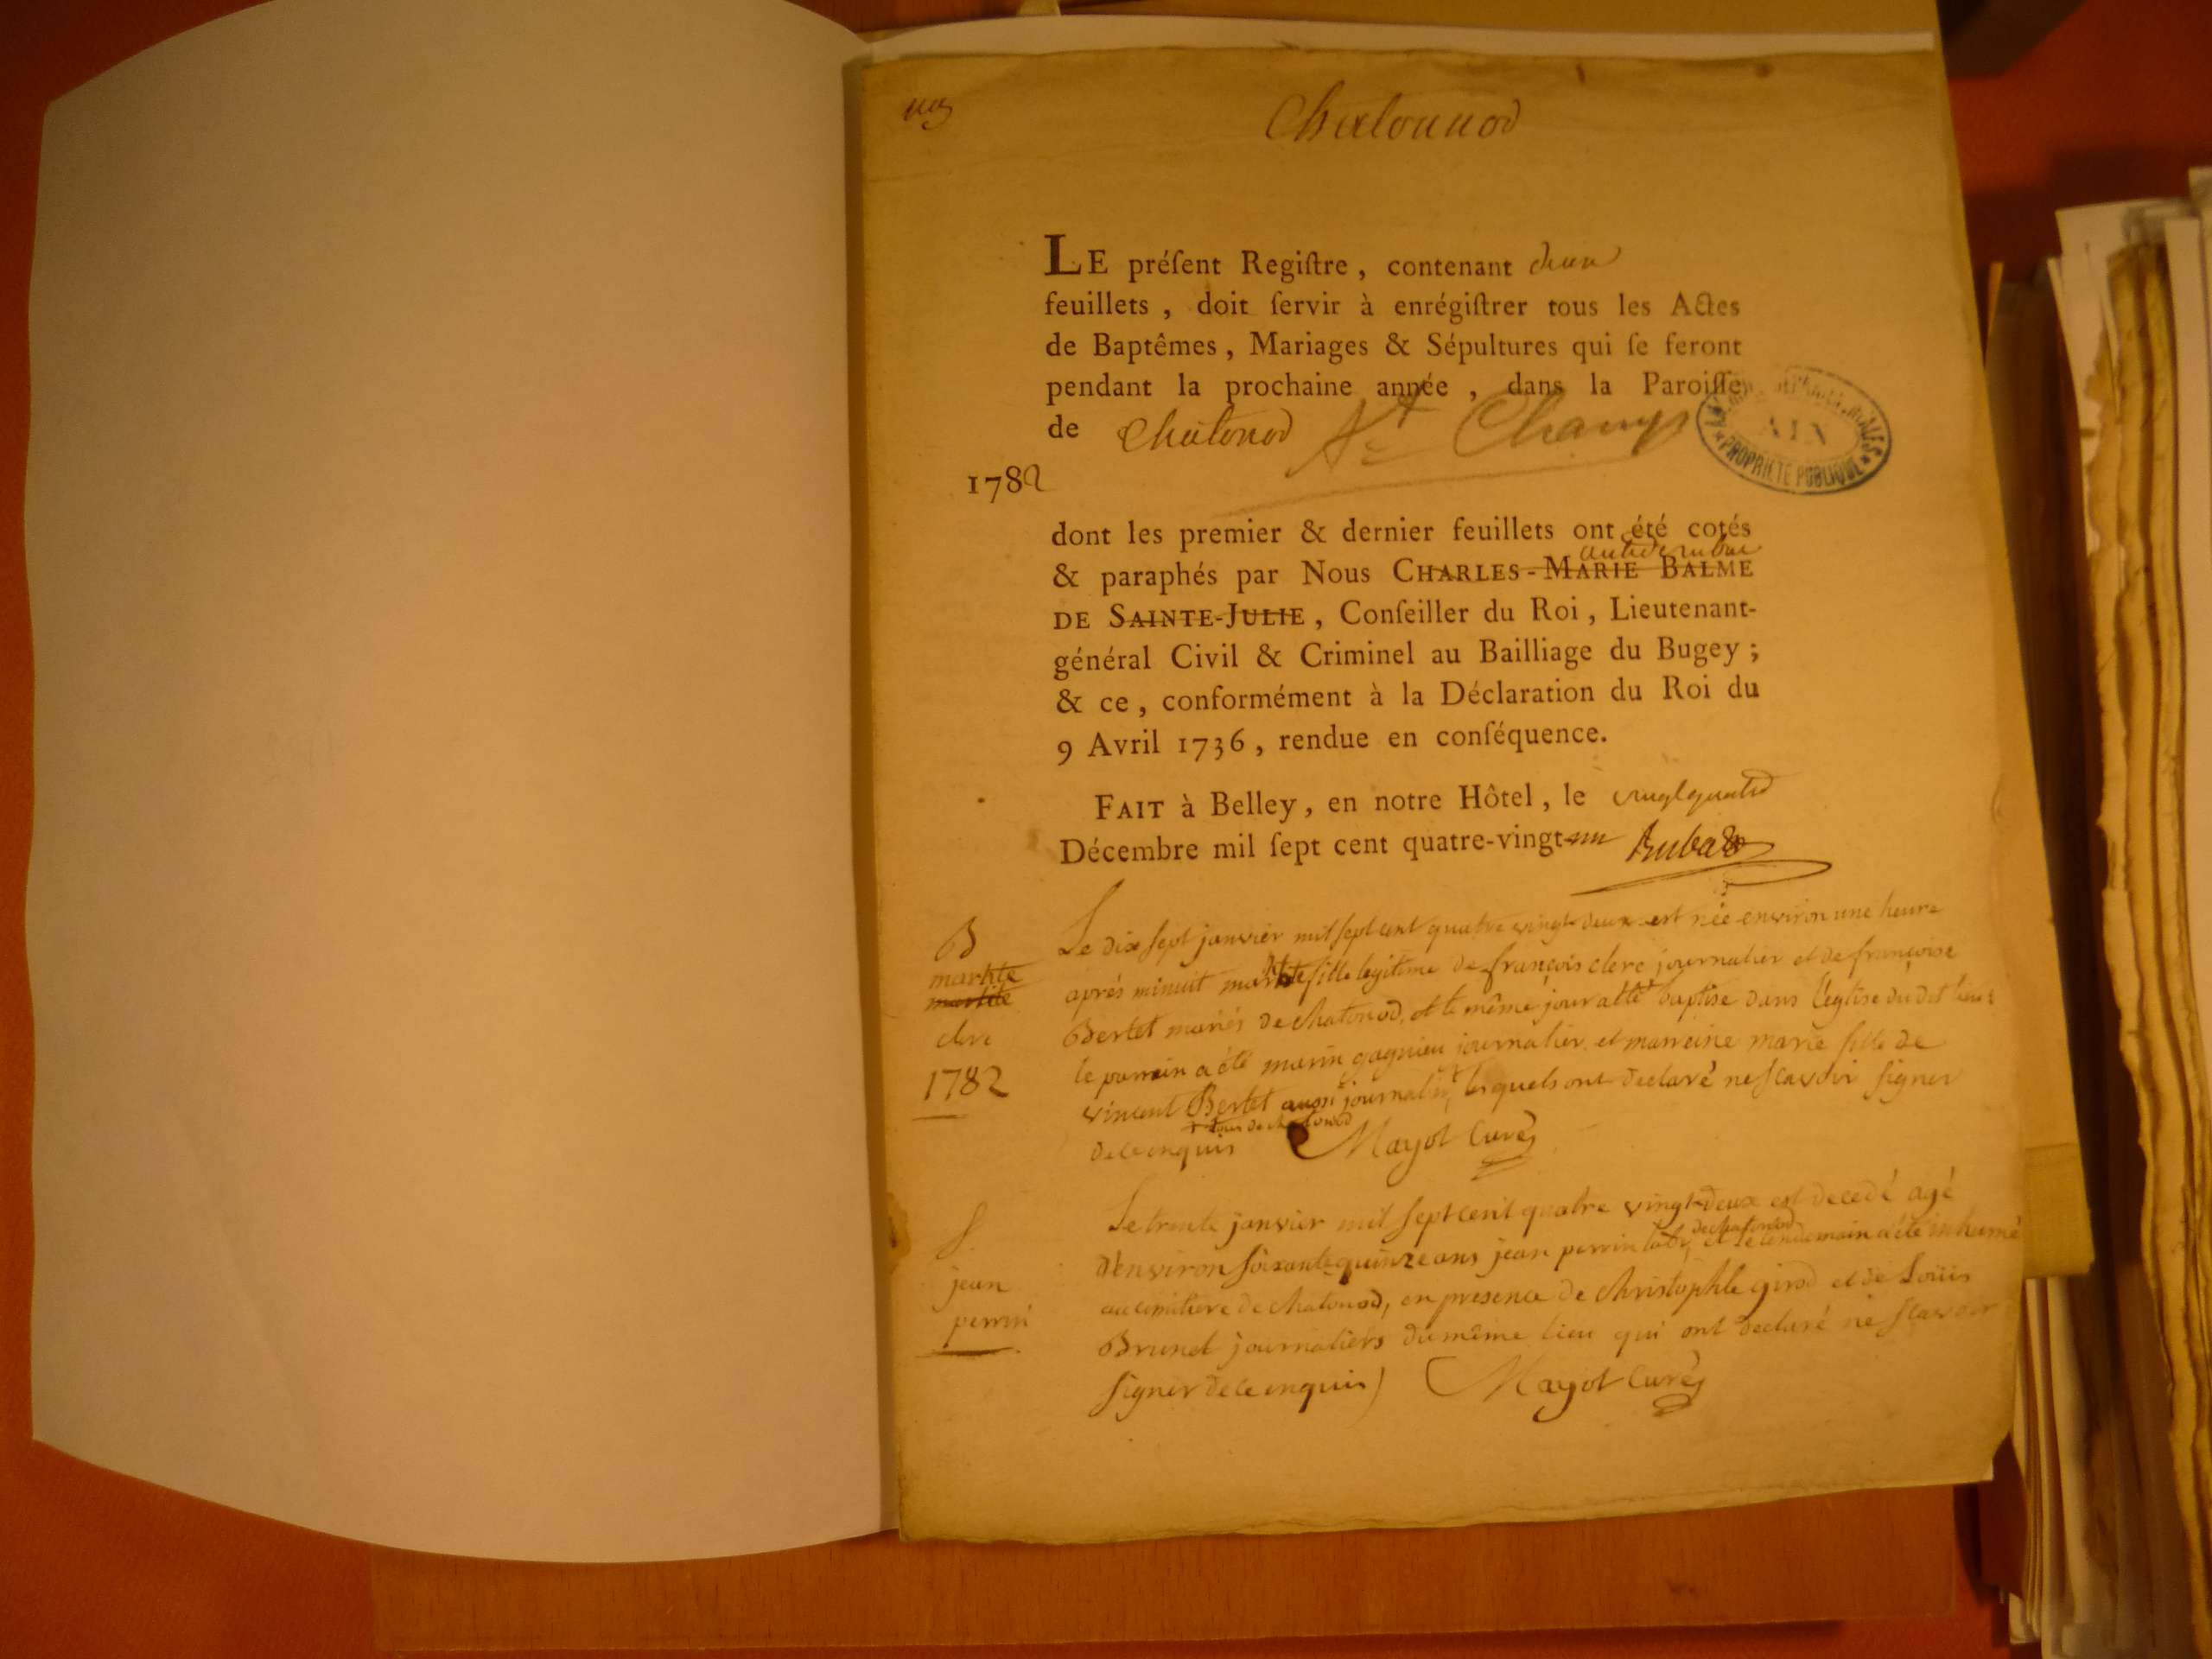 Chatonnod
LE préſent Regiſtre, contenant deux
feuillets, doit ſervir à enrégiſtrer tous les Actes
de Baptêmes, Mariages & Sépultures qui ſe feront
pendant la prochaine année, dans la Paroiſſe
de Chatonod St Champ
PROPRIÉTÉ PUBLIQUE
AIN
1782
dont les premier & dernier feuillets ont été cotés
& paraphés par Nous CHARLES-MARIE BALME
DE SAINTE-JULIE, Conſeiller du Roi, Lieutenant-
général Civil & Criminel au Bailliage du Bugey;
& ce, conformément à la Déclaration du Roi du
9 Avril 1736, rendue en conſéquence.
FAIT à Belley, en notre Hôtel, le vingt quatre
Décembre mil ſept cent quatre-vingt-un Rubat
B
marhte
martite
clerc
1782
Le dix sept janvier mil sept cent quatre vingt deux est née environ une heure
aprés minuit fille legitime de françois clerc journalier et de françoise
Bertet mariés de chatonod, et le même jour a été baptisé dans l'eglise du dit lieu
le parrain a été marin gagnieu journalier et marreine marie fille de
vincent Bertet aussi journalier, lesquels ont declaré ne scavoir signer
+ tous de chatonod
de ce enquis Mayot Curé
S.
jean
perrin
Le trente janvier mil sept cent quatre vingt deux est decedé agé
de chatonod
d'environ soixante quinze ans jean perrin labr, et le lendemain a été inhumé
au cimitiere de chatonod, en presence de christophle girod et de Loüis
Brunet journaliers du même lieu qui ont declaré ne scavoir
signer de ce enquis) Mayot Curé